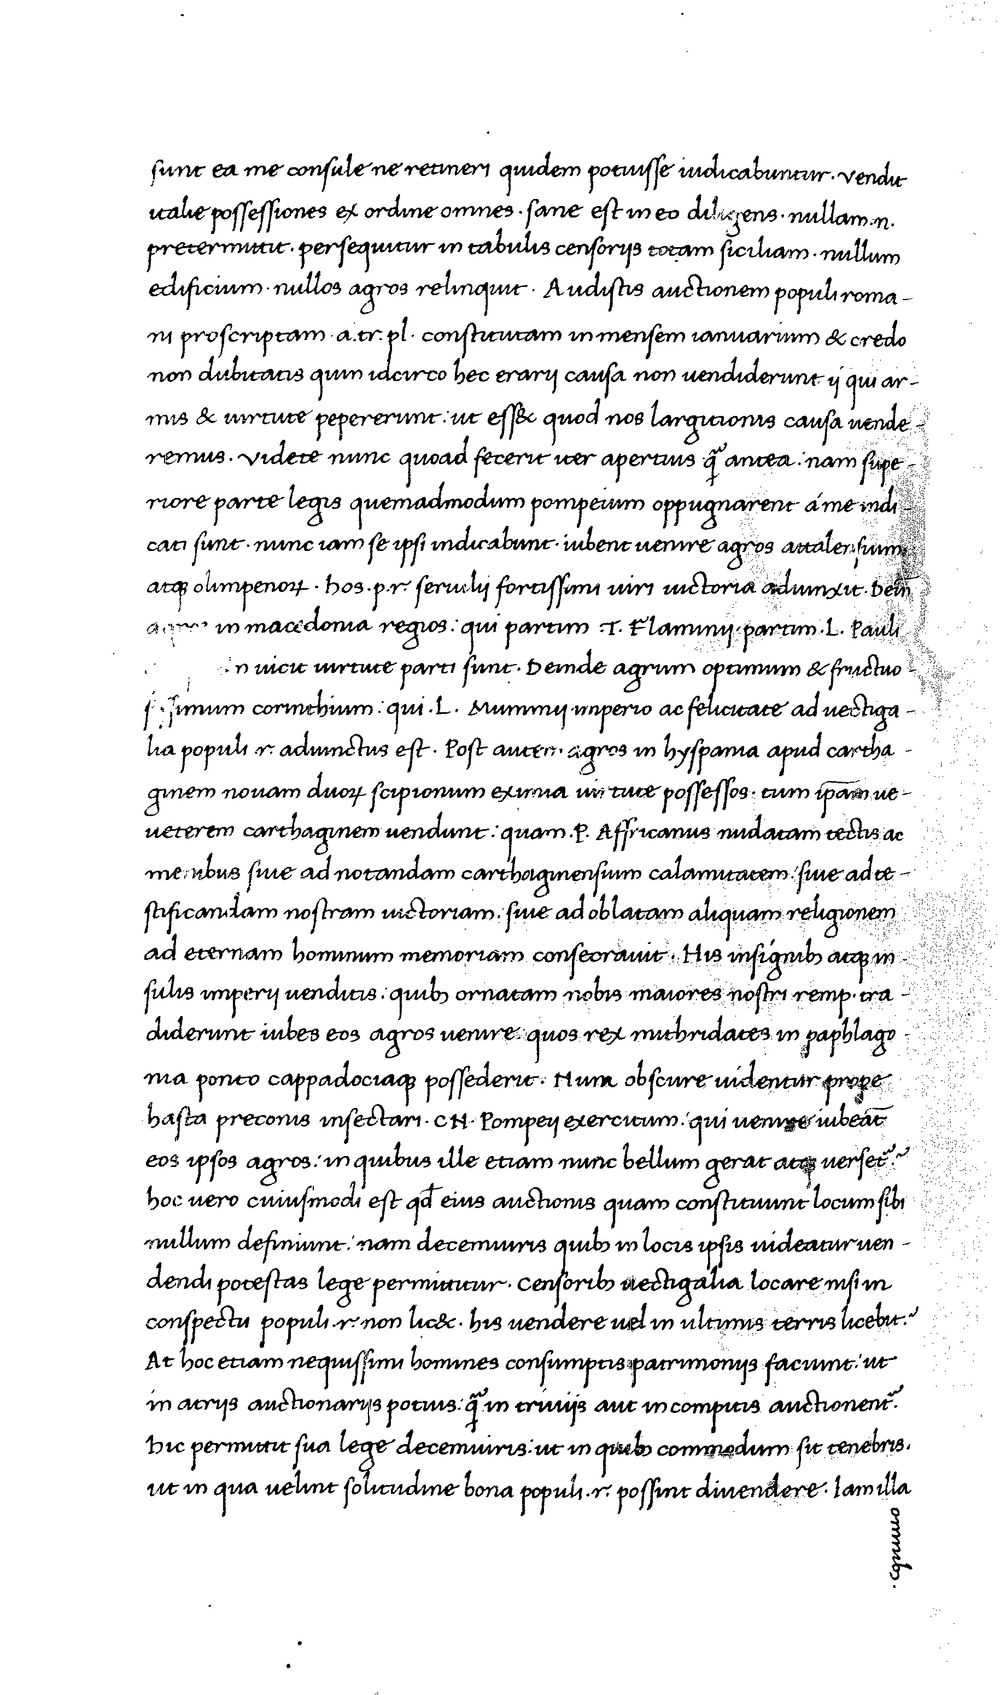 sunt ea me consule ne retineri quidem potuisse iudicabuntur. vendit
italie possessiones ex ordine omnes. sane est in eo diligens. nullam .n.
pretermittit. persequitur in tabulis censorijs totam siciliam. nullum
edificium. nullos agros relinquit. Audistis auctionem populi roma-
ni proscriptam .a.tr.pl. constitutam in mensem ianuarium & credo
non dubitatis quin idcirco hec erarij causa non uendiderunt ij qui ar-
mis & uirtute pepererunt: ut ess& quod nos largitionis causa uende-
remus. Videte nunc quoad fecerit iter apertius qͣ̃ antea: nam supe-
riore parte legis quemadmodum pompeium oppugnarent á me indi
cati sunt. nunc iam se ipsi indicabunt. iubent uenire agros attalensium
atqꝫ olimpenoꝝ. hos .p.r. seruilij fortissimi uiri uictoria adiunxit. Dein̄
agros in macedonia regios: qui partim .T. Flaminij partim .L. Pauli
n uicit uirtute parti sunt. Deinde agrum optimum & fructuo-
simum corinthium: qui .L. Mummij imperio ac felicitate ad uectiga-
lia populi .r. adiunctus est. Post autem agros in hyspania apud cartha-
ginem nouam duoꝝ scipionum eximia uirtute possessos. tum ip̄am ue-
ueterem carthaginem uendunt: quam .P. Affricanus nudatam tectis ac
menibus siue ad notandam carthaginensium calamitatem: siue ad te-
stificandam nostram uictoriam: siue ad oblatam aliquam religionem
ad eternam hominum memoriam consecrauit. His insignibꝫ atqꝫ in-
sulis imperij uenditis: quibꝫ ornatam nobis maiores nostri remp. tra-
diderunt iubes eos agros uenire: quos rex mithridates in paphlago-
nia ponto cappadociaqꝫ possederit. Num obscure uidentur prope
hasta preconis insectari .CN. Pompeij exercitum: qui uenire iubeāt
eos ipsos agros: in quibus ille etiam nunc bellum gerat atqꝫ verset᷑?
hoc uero cuiusmodi est qđ eius auctionis quam constituunt locum sibi
nullum definiunt: nam decemuiris quibꝫ in locis ipsis uideatur uen-
dendi potestas lege permittitur. Censoribꝫ uectigalia locare nisi in
conspectu populi .r. non lic&. his uendere uel in ultimis terris licebit?
At hoc etiam nequissimi homines consumptis patrimonijs faciunt: ut
in atrijs auctionarijs potius: qͣ̃ in triuijs aut in compitis auctionent᷑.
hic permittit sua lege decemuiris: ut in quibꝫ commodum sit tenebris.
ut in qua uelint solitudine bona populi .r. possint diuendere. Iam illa
omnibꝫ.